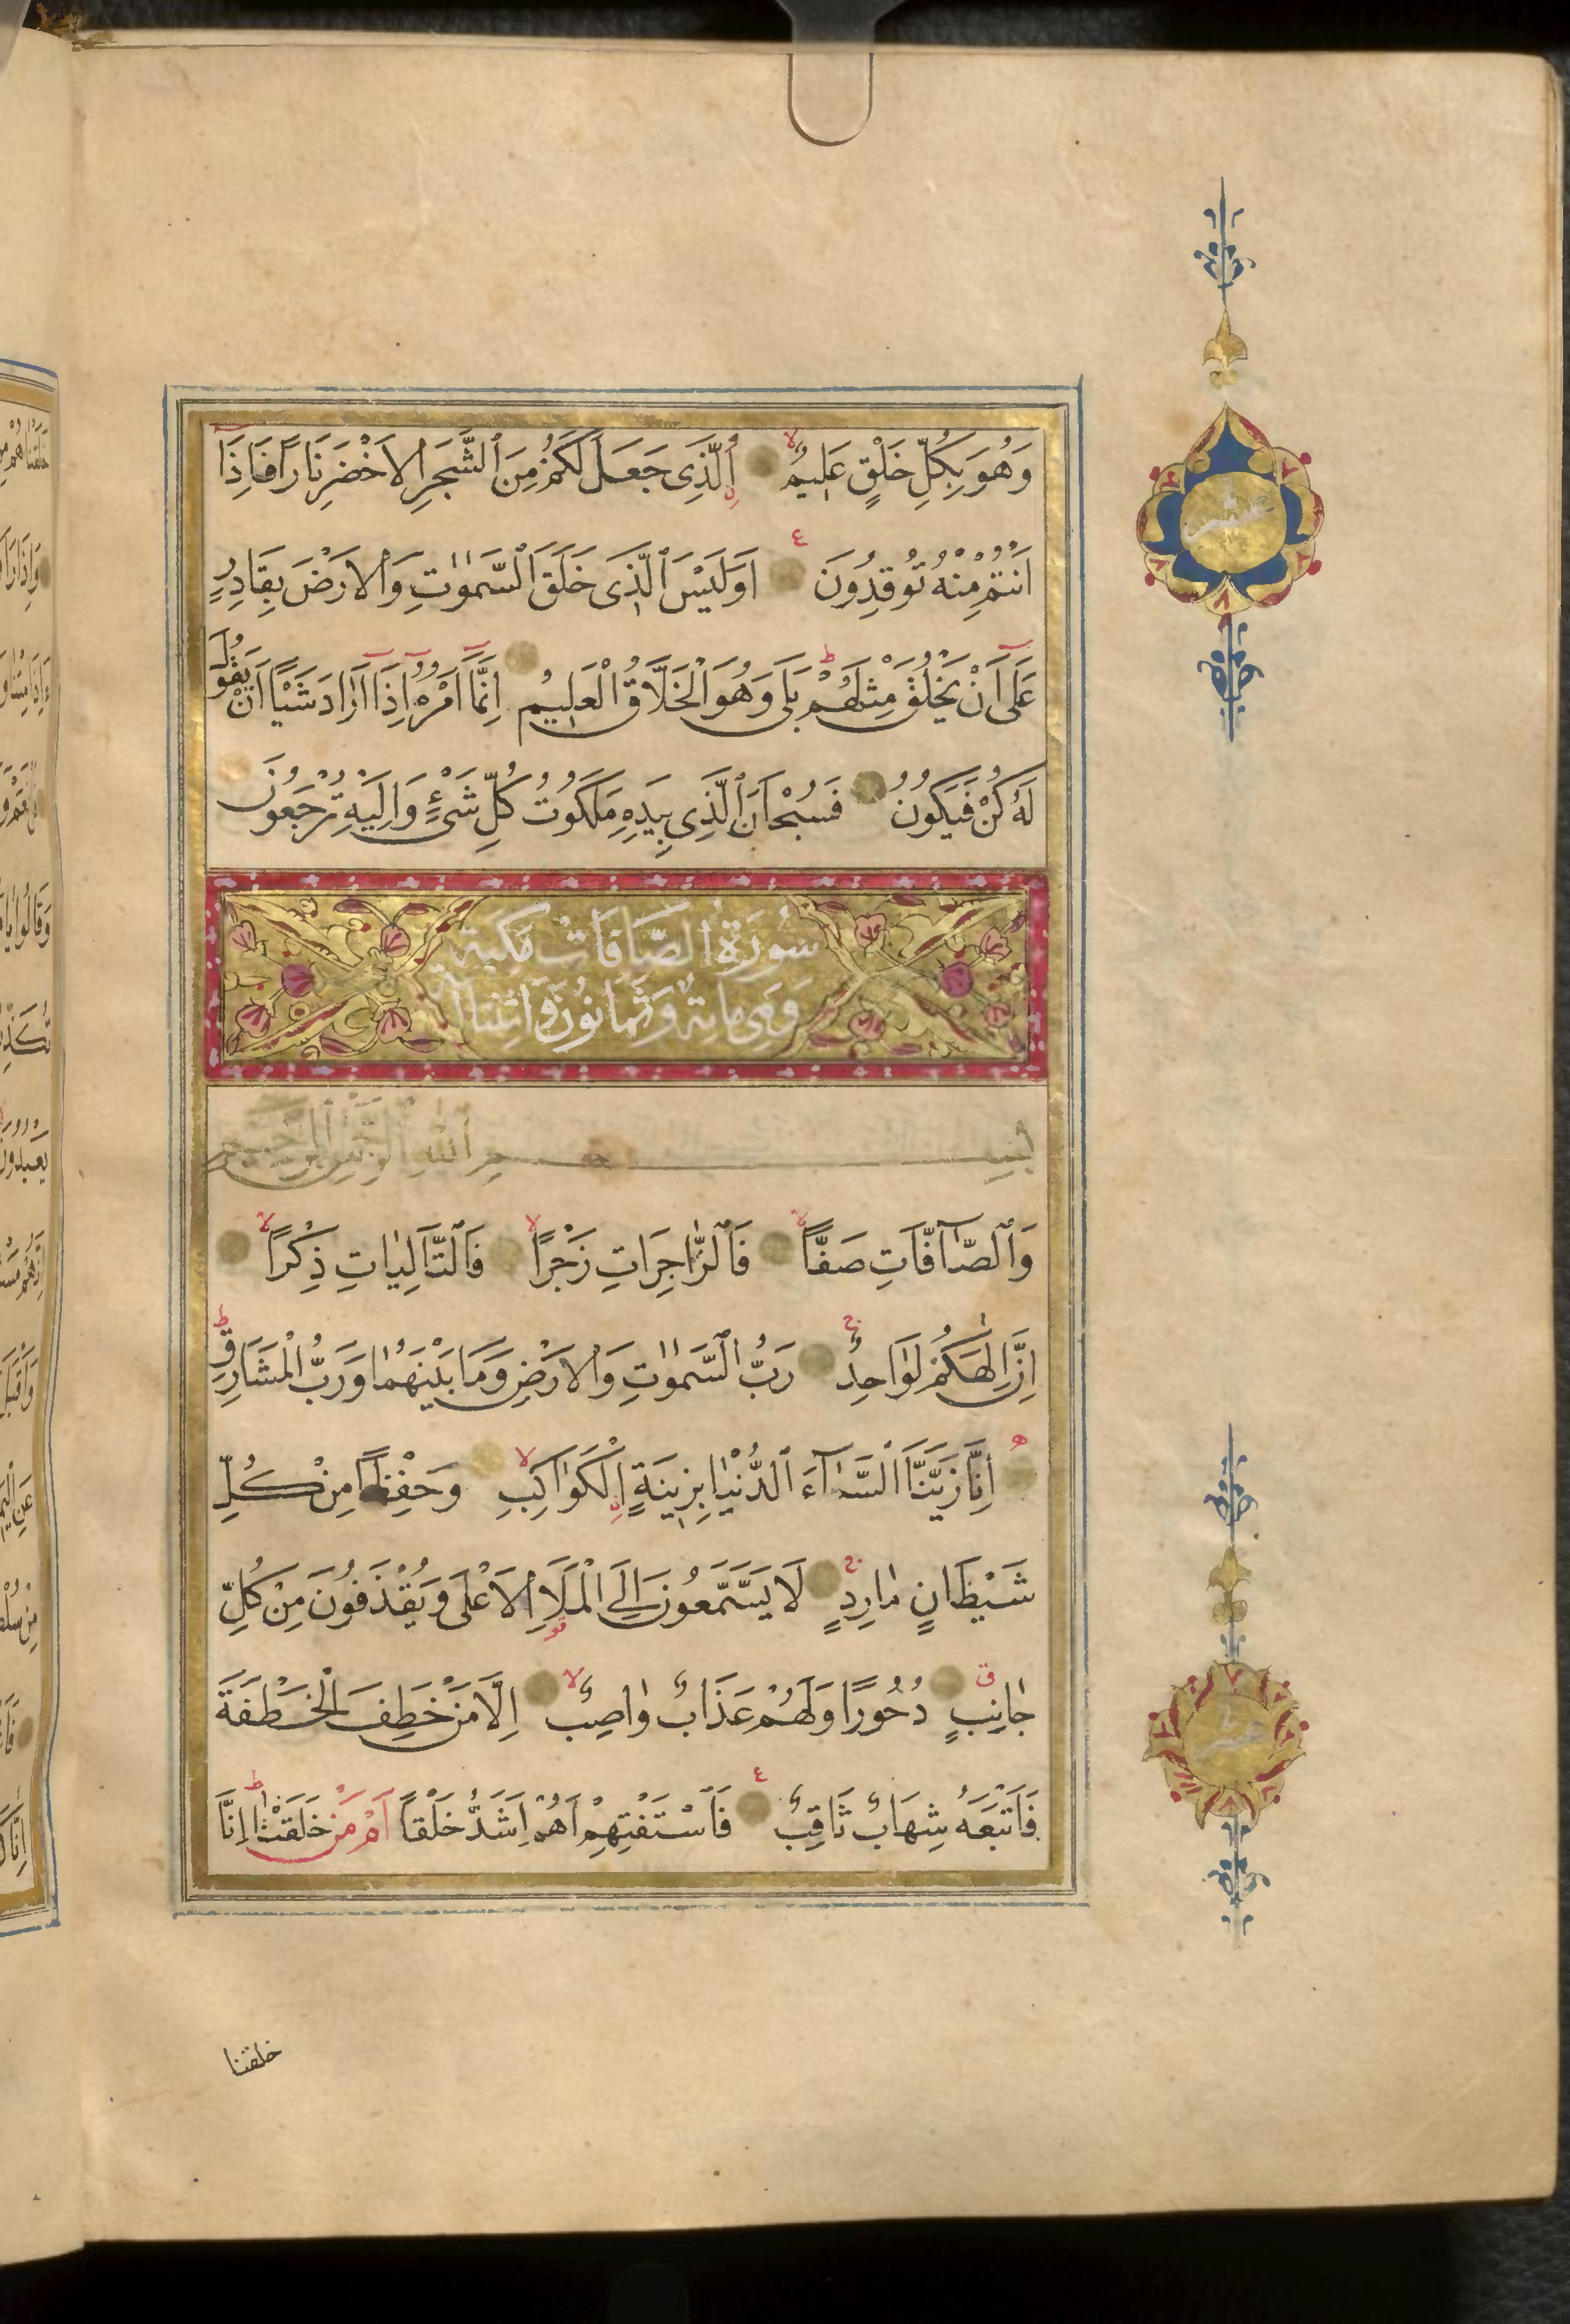 وَهُوَ بِكُلِّ خَلْقٍ عَلِيمٌ اَلَّذِى جَعَلَ لَكُمْ مِنَ الشَّجَرِ الْاَخْضَرِ نَارًا فَاِذَا
اَنْتُمْ مِنْهُ تُوقِدُونَ اَوَلَيْسَ الَّذِى خَلَقَ السَّمٰوٰتِ وَالْاَرْضَ بِقَادِرٍ
عَلٰى اَنْ يَخْلُقَ مِثْلَهُمْ بَلٰى وَهُوَ الْخَلَّاقُ الْعَلِيمُ اِنَّمَا اَمْرُهُ اِذَا اَرَادَ شَيْئًا اَنْ يَقُولَ
لَهُ كُنْ فَيَكُونُ فَسُبْحَانَ الَّذِى بِيَدِهِ مَلَكُوتُ كُلِّ شَىْءٍ وَاِلَيْهِ تُرْجَعُونَ
سُورَةُ الصَّافَّاتِ مَكِّيَّةٌ
وَهِىَ مِائَةٌ وَثَمَانُونَ وَاثْنَتَا
بِسْمِ اللهِ الرَّحْمٰنِ الرَّحِيمِ
وَالصَّآفَّاتِ صَفًّا فَالزَّاجِرَاتِ زَجْرًا فَالتَّالِيَاتِ ذِكْرًا
اِنَّ اِلٰهَكُمْ لَوَاحِدٌ رَبُّ السَّمٰوٰتِ وَالْاَرْضِ وَمَا بَيْنَهُمَا وَرَبُّ الْمَشَارِقِ
اِنَّا زَيَّنَّا السَّمَآءَ الدُّنْيَا بِزِينَةٍ الْكَوَاكِبِ وَحِفْظًا مِنْ كُلِّ
شَيْطَانٍ مَارِدٍ لَا يَسَّمَّعُونَ اِلَى الْمَلَاِ الْاَعْلٰى وَيُقْذَفُونَ مِنْ كُلِّ
جَانِبٍ دُحُورًا وَلَهُمْ عَذَابٌ وَاصِبٌ اِلَّا مَنْ خَطِفَ الْخَطْفَةَ
فَاَتْبَعَهُ شِهَابٌ ثَاقِبٌ فَاسْتَفْتِهِمْ اَهُمْ اَشَدُّ خَلْقًا اَمْ مَنْ خَلَقْنَا اِنَّا
خلقنا